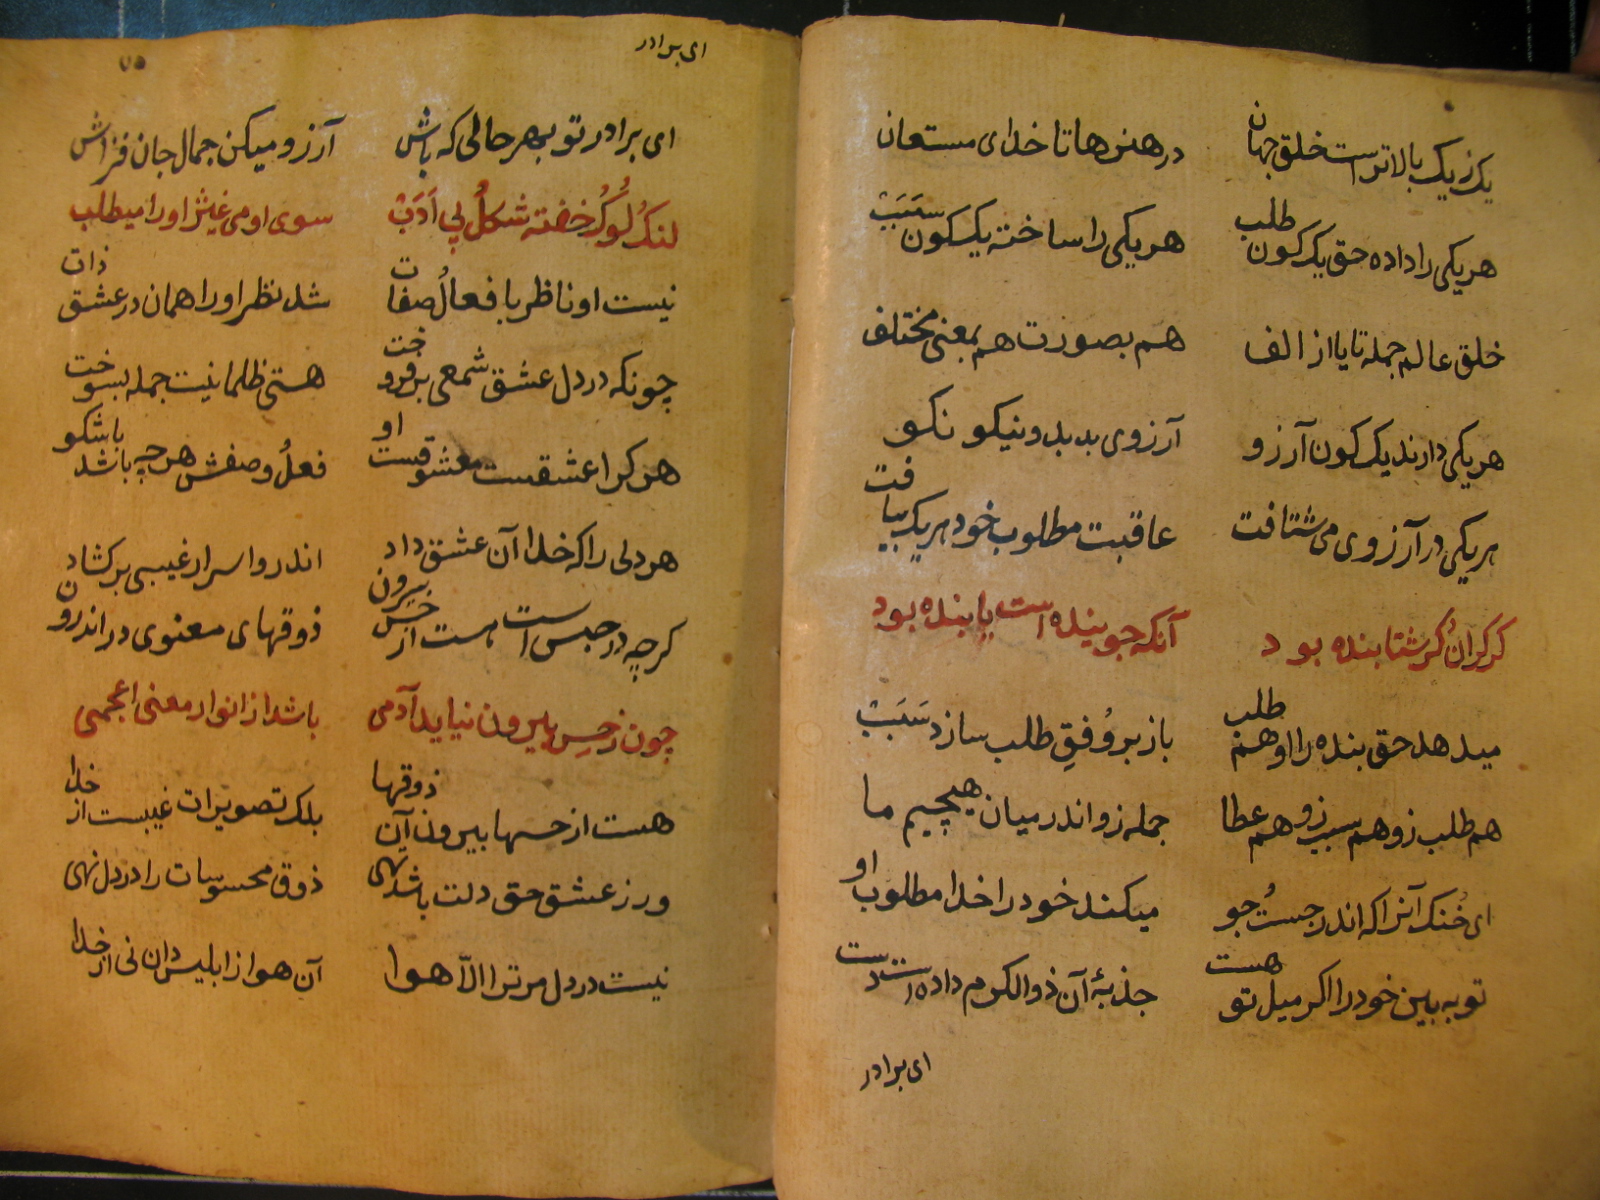 یک زیک بالاترست خلق جهان در هنرها تا خدای مستعان
هر یکی را داده حق یک کون طلب هر یکی را ساخته یک کون سبب
خلق عالم جمله تا یا از الف هم بصورت هم بمعنی مختلف
هر یکی دارند یک کون آرزو آرزوی بد بد و نیکو نکو
هر یکی در آرزوی می شتافت عاقبت مطلوب خود هر یک بیافت
کر کران کر شتابنده بود آنکه جوینده است یابنده بود
میدهد حق بنده را او هم طلب باز بر وفق طلب سازد سبب
هم طلب زو هم سبب زو هم عطا جمله زو اندر میان هیچیم ما
ای خنک آنرا که اندر جست جو میکند خود را خدا مطلوب او
تو به بین خود را اکر میل تو هست جذبۀ آن ذوالکرم داده است دست
ای برادر
ای برادر
۷۵
ای برادر تو بهر حالی که باش آرزو میکن جمال جان فزاش
لنک لوک خفته شکل بی ادب سوی او می غیژ او را میطلب
نیست او ناظر بافعال صفات شد نظر او را همان در عشق ذات
چونکه در دل عشق شمعی برفروخت هستی ظلمانیت جمله بسوخت
هر کرا عشقست معشوقست او فعل وصفش هر چه باشد باشکو
هر دلی را که خدا آن عشق داد اندر و اسرار غیبی بر کشاد
کرچه در حبس است هست از حس بیرون ذوقهای معنوی در اندرون
چون زحس بیرون نیاید آدمی باشد از انوار معنی اعجمی
هست از حسها بیرون آن ذوقها بلک تصویرات غیبست از خدا
ور ز عشق حق دلت باشد تهی ذوق محسوسات را در دل نهی
نیست در دل مر ترا الاّ هوا آن هوا از ابلیس دان نی از خدا